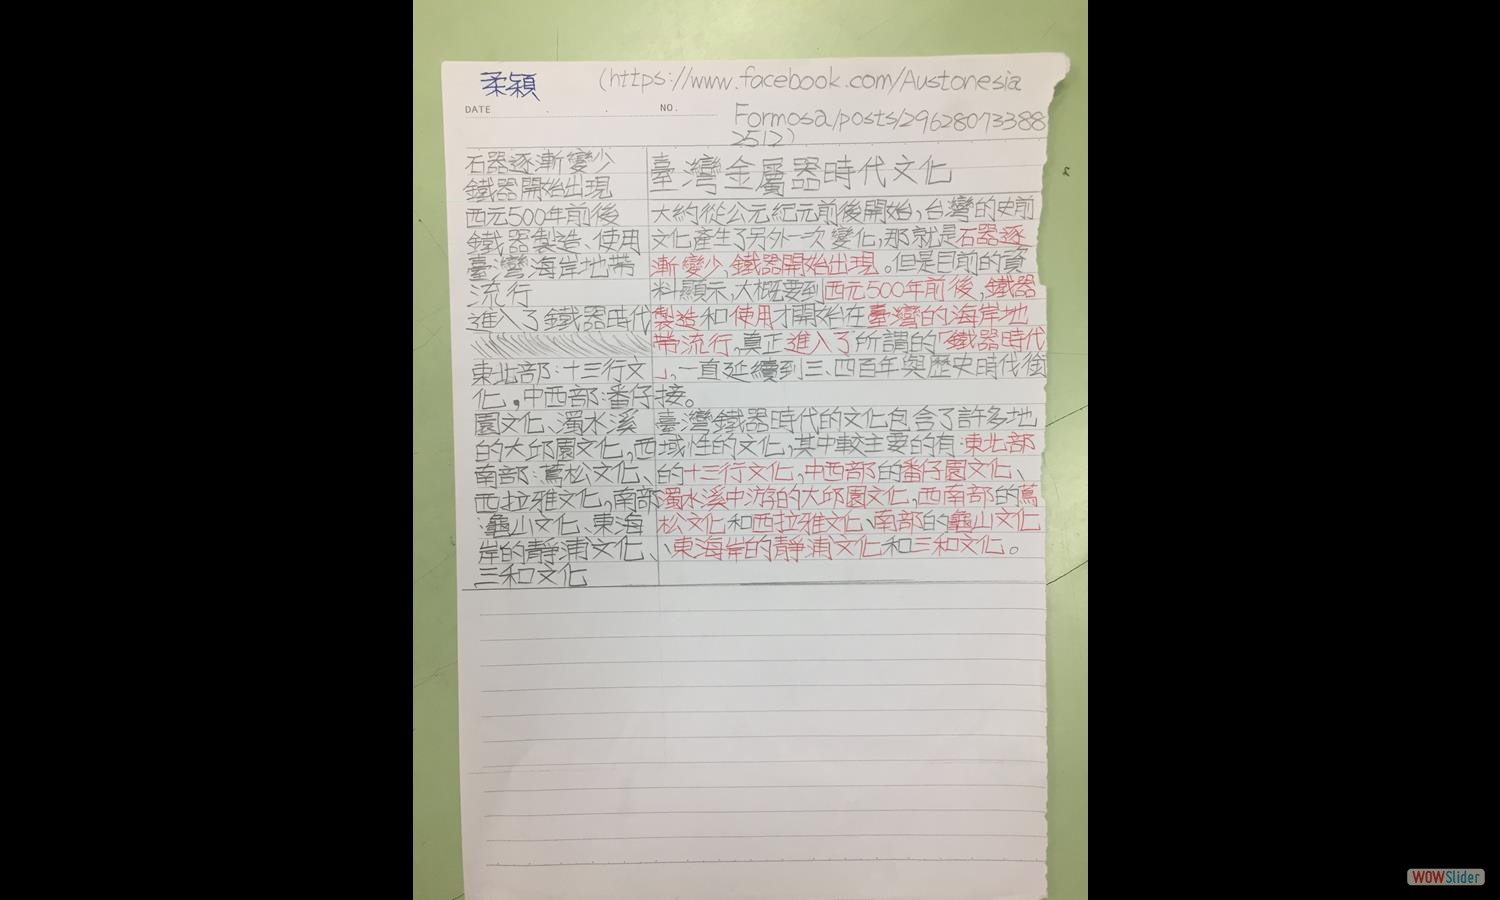 柔穎
(https://www.facebook.com/Austonesia
DATE . . NO.
Formosa/posts/29628073388
2512)
石器逐漸變少
鐵器開始出現
西元500年前後
鐵器製造、使用
臺灣海岸地帶
流行
進入了鐵器時代
東北部:十三行文
化，中西部:番仔
園文化、濁水溪
的大邱園文化,西
南部:蔦松文化、
西拉雅文化,南部
:龜山文化、東海
岸的靜浦文化、
三和文化
臺灣金屬器時代文化
大約從公元紀元前後開始,台灣的史前
文化產生了另外一次變化,那就是石器逐
漸變少,鐵器開始出現。但是目前的資
料顯示,大概要到西元500年前後,鐵器
製造和使用才開始在臺灣的海岸地
帶流行,真正進入了所謂的「鐵器時代
」,一直延續到三、四百年與歷史時代銜
接。
臺灣鐵器時代的文化包含了許多地
域性的文化,其中較主要的有:東北部
的十三行文化,中西部的番仔園文化、
濁水溪中游的大邱園文化,西南部的蔦
松文化和西拉雅文化、南部的龜山文化
、東海岸的靜浦文化和三和文化。
WOWSlider